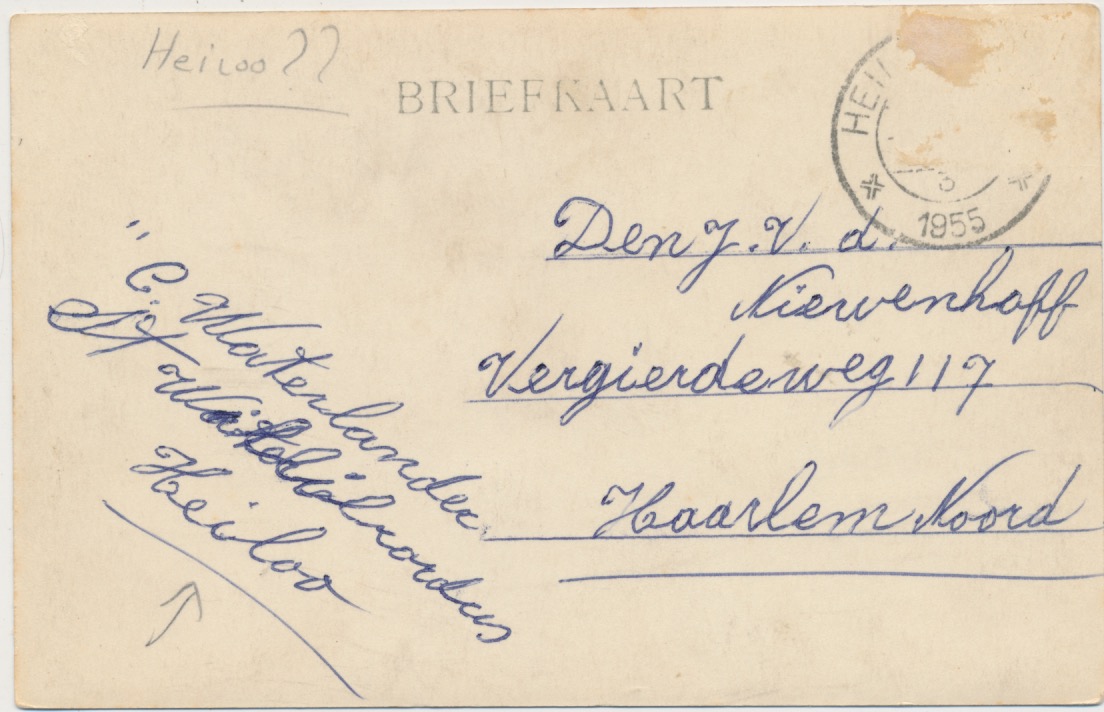 Heiloo ??
BRIEFKAART
HEI
3
1955
Den J. V. d.
Niewenhoff
Vergierdeweg 117
Haarlem Noord
"
C. Waterlander
St Willibrordus
Heiloo